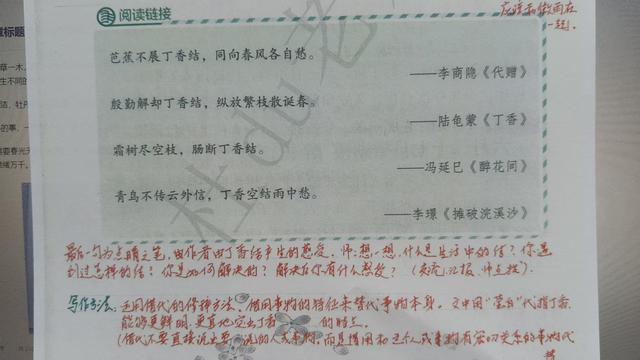 应该和微雨在
一起。
阅读链接
芭蕉不展丁香结，同向春风各自愁。
——李商隐《代赠》
殷勤解却丁香结，纵放繁枝散诞春。
——陆龟蒙《丁香》
霜树尽空枝，肠断丁香结。
——冯延巳《醉花间》
青鸟不传云外信，丁香空结雨中愁。
——李璟《摊破浣溪沙》
最后一句为点睛之笔，由作者由丁香结产生的感受。师：想一想，什么是生活中的结？你遇
到过怎样的结？你是如何解决的？解决后你有什么感受？（交流，汇报，师点拨）。
写作方法：运用借代的修辞方法。借用事物的特征来替代事物本身。文中用“莹白”代指丁香
能够更鲜明、更 地突出丁香 的特点。
（借代不要直接说出要 的人或事物，而是借用和这个人或事物有密切关系的事物代
替
标题
草一木，
生不同的
洁、牡丹
的事，一
需要春光无
绪万千。